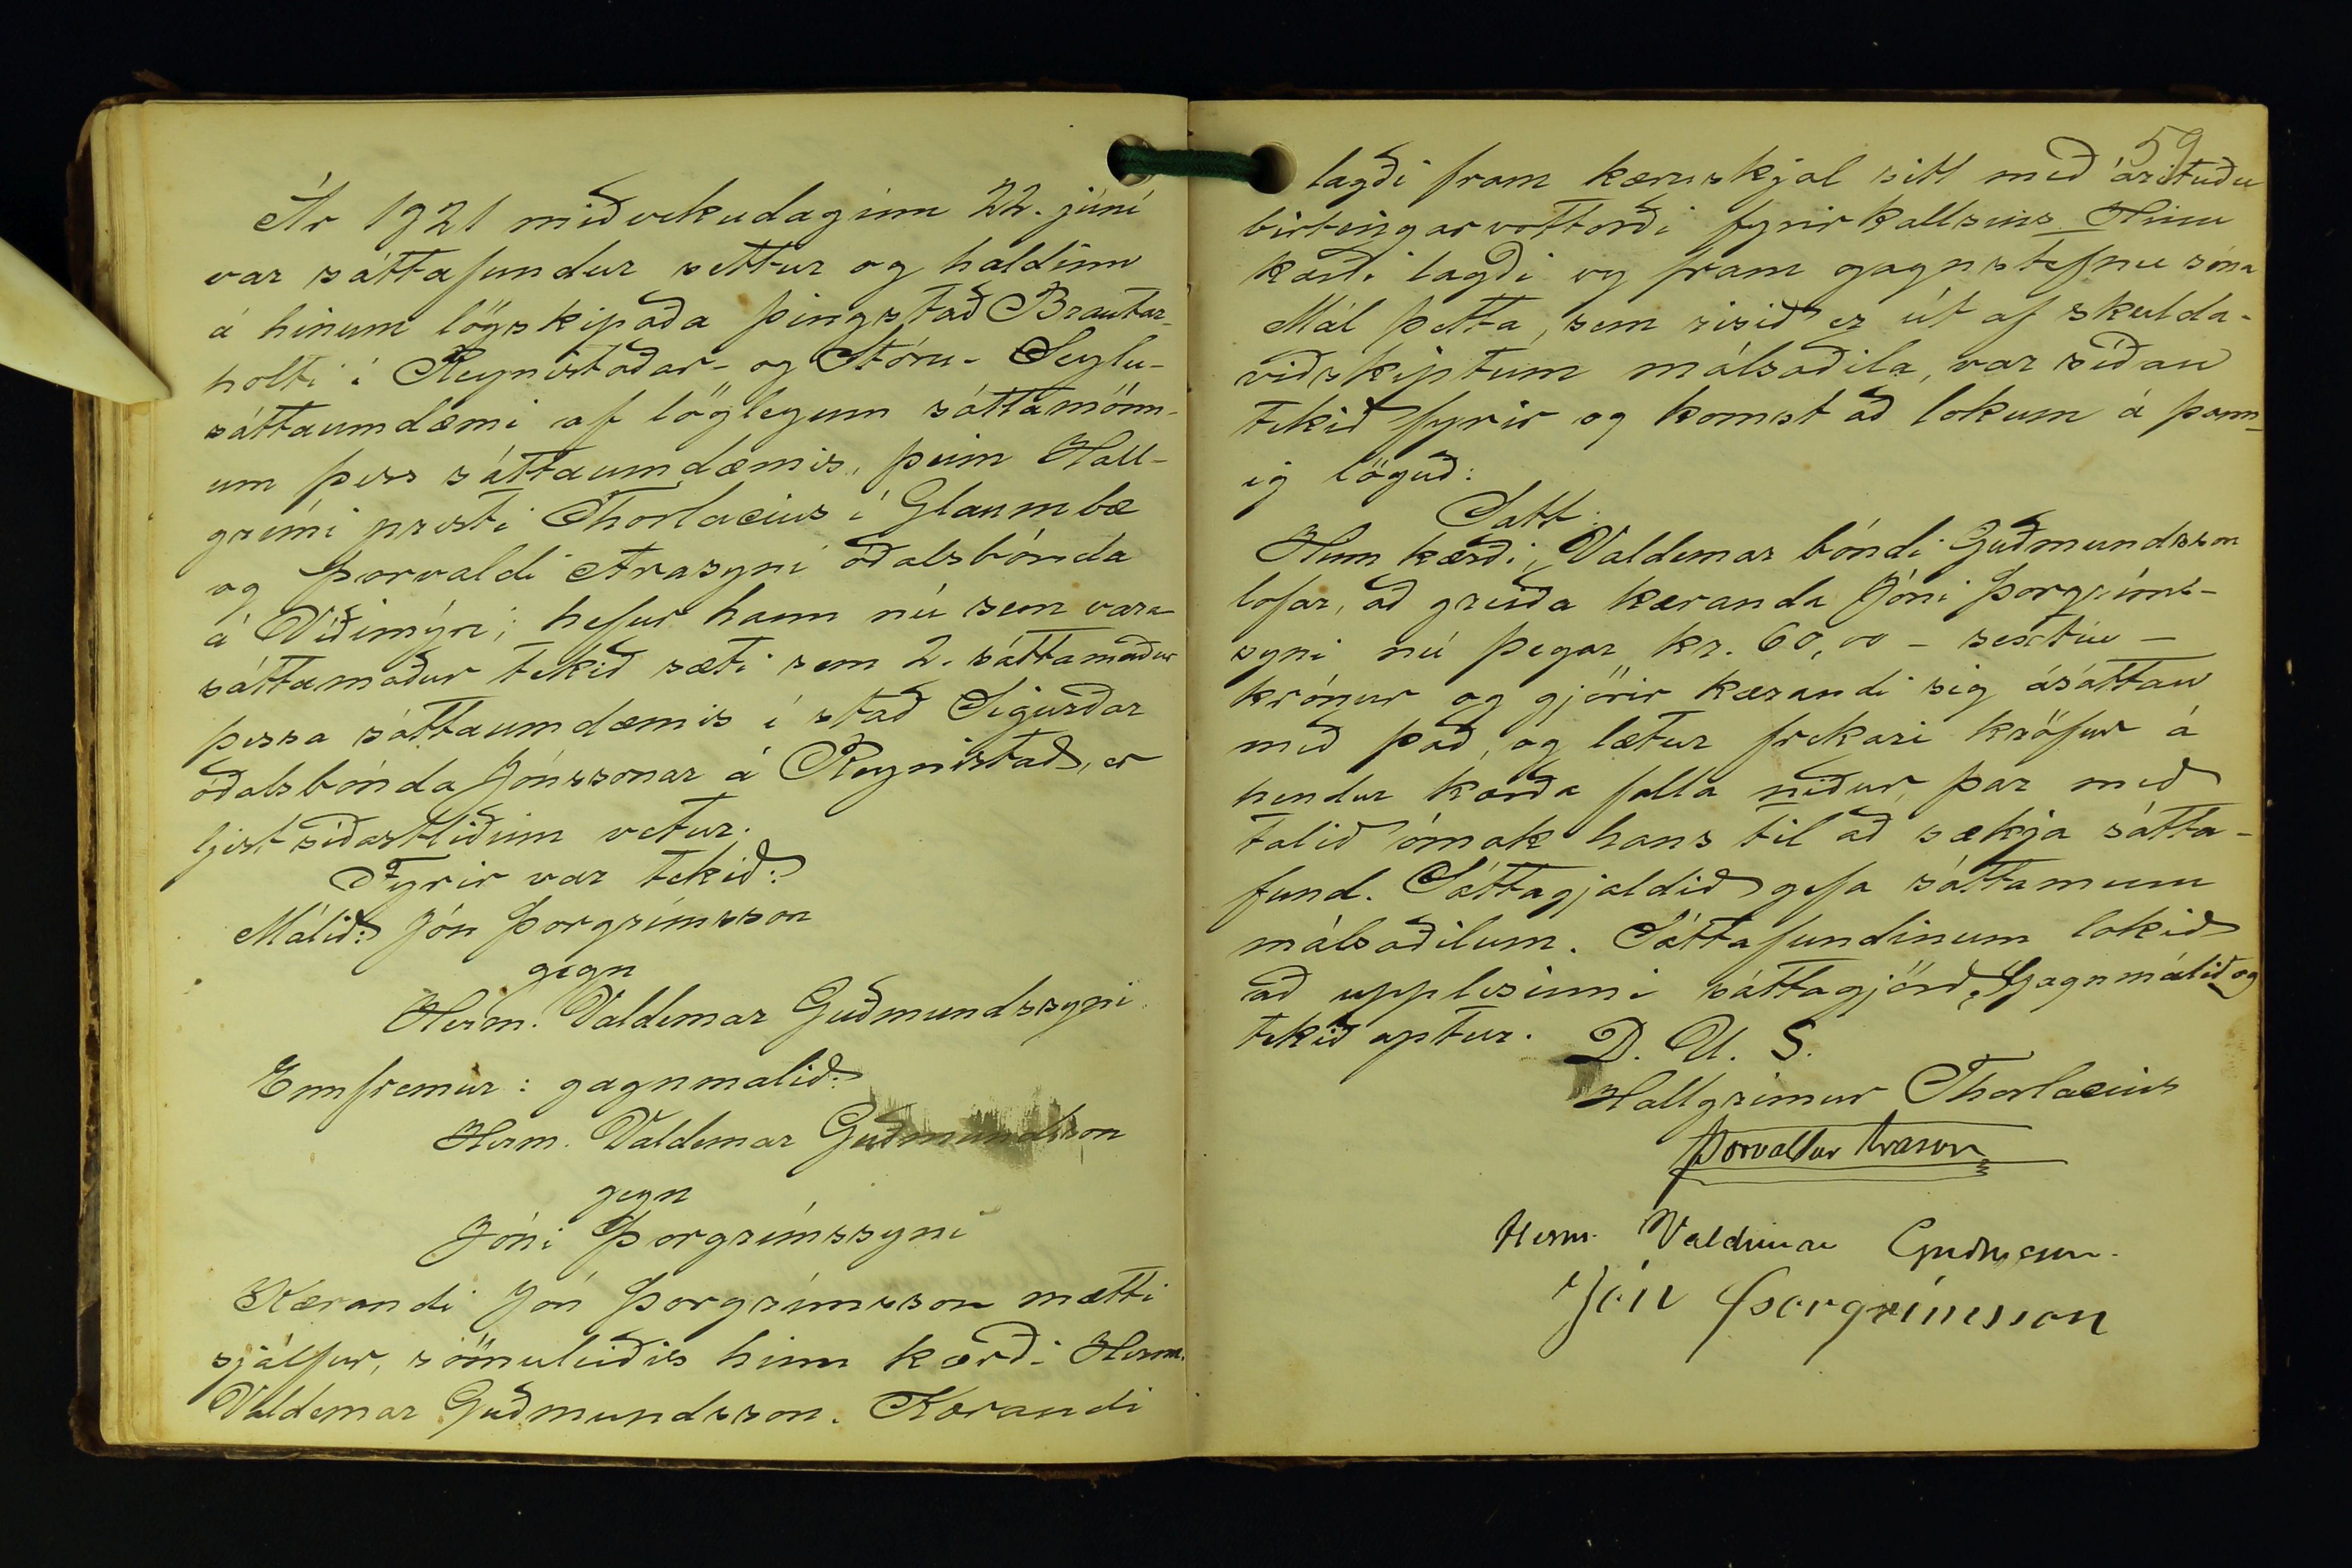 Ár 1921 miðvikudaginn 22. júní
var sáttafundur settur og haldinn
á hinum lögskipaða þingstað Brautar-
holti í Reynistaðar- og Stóru-Seylu-
sáttaumdæmi af löglegum sáttamönn-
um þess sáttaumdæmis, þeim Hall-
grími presti Thorlacius í Glaumbæ
og Þorvaldi Arasyni óðalsbónda
á Víðimýri; hefur hann nú sem vara-
sáttamaður tekið sæti sem 2. sáttamaður
þessa sáttaumdæmis í stað Sigurðar
óðalsbónda Jónssonar á Reynistað, er
ljest síðastliðinn vetur.
Fyrir var tekið:
Málið: Jón Þorgrímsson
gegn
Herm. Valdemar Guðmundssyni
Ennfremur: gagnmálið:
Herm. Valdemar Guðmundsson
gegn
Jóni Þorgrímssyni
Kærandi Jón Þorgrímsson mætti
sjálfur, sömuleiðis hinn kærði Herm.
Valdemar Guðmundsson. Kærandi
59
lagði fram kæruskjal sitt með árituðu
birtingarvottorði fyrirkallsins. Hinn
kærði lagði og fram gagnstefnu sína
Mál þetta, sem risið er út af skulda-
viðskiptum málsaðila, var síðan
tekið fyrir og komst að lokum á þann-
ig löguð:
Sátt:
Hinn kærði, Valdemar bóndi Guðmundsson
lofar, að greiða kæranda Jóni Þorgríms-
syni nú þegar kr. 60,00 - sextíu -
krónur og gjörir kærandi sig ásáttan
með það, og lætur frekari kröfur á
hendur kærða falla niður, þar með
talið ómak hans til að sækja sátta-
fund. Sáttagjaldið gefa sáttamenn
málsaðilum. Sáttafundinum lokið
að upplesinni sáttagjörð. Gagnmálið og
tekið aptur. D. U. S.
Hallgrímur Thorlacius
Þorvaldur Arason
Herm. Valdemar Guðmann.
Jón Þorgrímsson